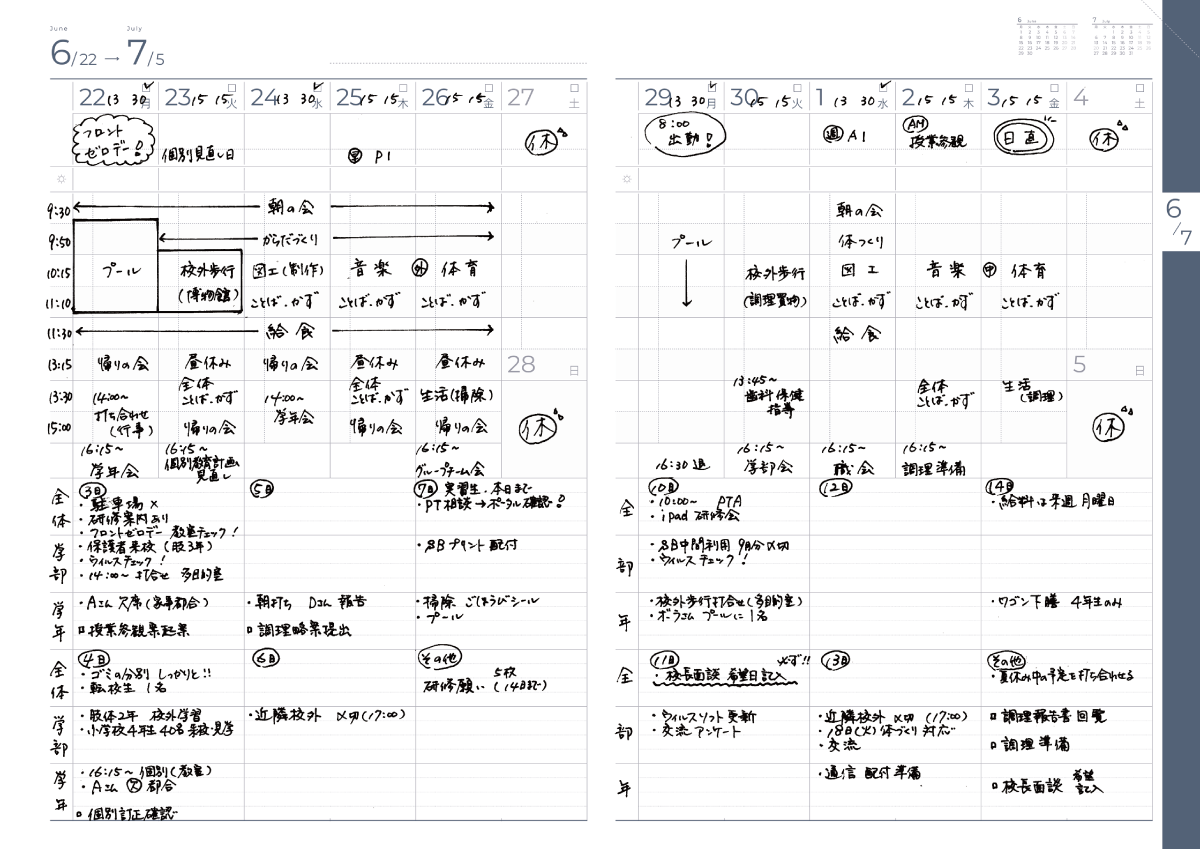 June
July
6/22 → 7/5
22 13 30 月
23 15 15 火
24 13 30 水
25 15 15 木
26 15 15 金
27 土
フロント
ゼロデー!
個別見直し日
P1
休
9:30
朝の会
9:50
からだづくり
10:15
プール
校外歩行
図工(制作)
音楽
外
体育
11:10
(博物館)
ことば・かず
ことば・かず
ことば・かず
11:30
給食
13:15
帰りの会
昼休み
帰りの会
昼休み
昼休み
28 日
13:30
14:00~
打ち合わせ
(行事)
全体
ことば・かず
14:00~
学年会
全体
ことば・かず
生活(掃除)
休
15:00
帰りの会
帰りの会
帰りの会
16:15~
学年会
16:15~
個別教育計画
見直し
16:15~
グループチーム会
全体
3日
・駐車場 ×
・研修案内あり
・フロントゼロデー 教室チェック!
5日
7日 実習生、本日まで
・PT相談→ポータル確認!
学部
・保護者来校(肢3年)
・ウィルスチェック!
・14:00~ 打合せ 多目的室
・SBプリント配付
学年
・Aさん 欠席(家事都合)
□授業参観案起案
・朝打ち Dさん 報告
□調理略案提出
・掃除 ごほうびシール
・プール
全体
4日
・ゴミの分別 しっかりと!!
・転校生 1名
6日
その他
5枚
研修願い(14日まで)
学部
・肢体2年 校外学習
・小学校4年生40名来校・見学
・近隣校外 〆切(17:00)
学年
・16:15~ 個別(教室)
・Aさん 欠 都合
□個別訂正確認
6 June
7 July
29 13 30 月
30 15 15 火
1 13 30 水
2 15 15 木
3 15 15 金
4 土
8:00
出勤!
週 A1
AM
授業参観
日直
休
朝の会
プール
体づくり
校外歩行
図工
音楽
甲
体育
(調理買物)
ことば・かず
ことば・かず
ことば・かず
給食
5 日
13:45~
歯科保健
指導
全体
ことば・かず
生活
(調理)
休
16:30 退
16:15~
学部会
16:15~
職会
16:15~
調理準備
全
10日
・10:00~ PTA
・ipad 研修会
12日
14日
・給料は来週月曜日
部
・SB中間利用 9月分〆切
・ウィルスチェック!
年
・校外歩行打合せ(多目的室)
・ボラさん プールに1名
・ワゴン下膳 4年生のみ
全
11日
必ず!!
・校長面談 希望日記入
13日
その他
・夏休み中の予定を打ち合わせる
部
・ウィルスソフト更新
・交流アンケート
・近隣校外 〆切(17:00)
・18日(火)体づくり対応
・交流
□調理報告書回覧
□調理準備
年
・通信 配付準備
□校長面談 希望
記入
6/7